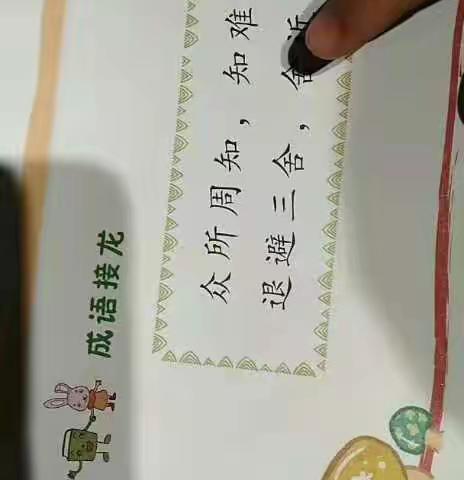 成语接龙
众所周知，知难
退避三舍，舍近